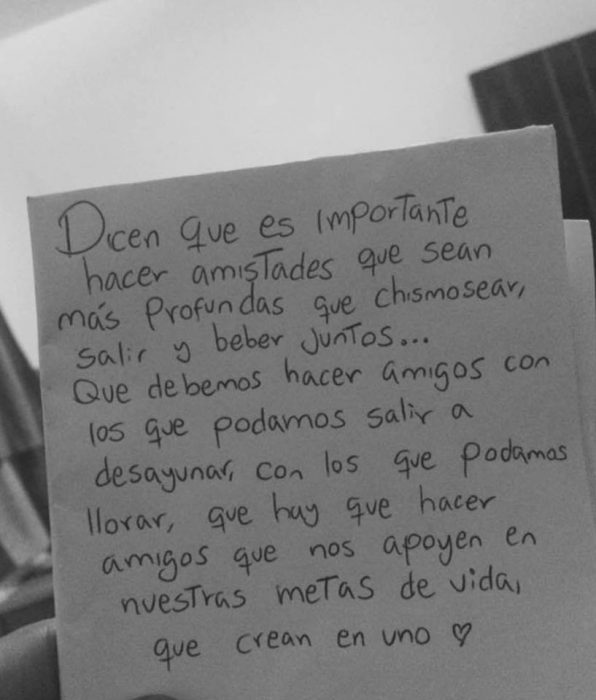 Dicen que es importante
hacer amistades que sean
más profundas que chismosear,
salir y beber juntos...
Que debemos hacer amigos con
los que podamos salir a
desayunar, con los que podamos
llorar, que hay que hacer
amigos que nos apoyen en
nuestras metas de vida,
que crean en uno ♡